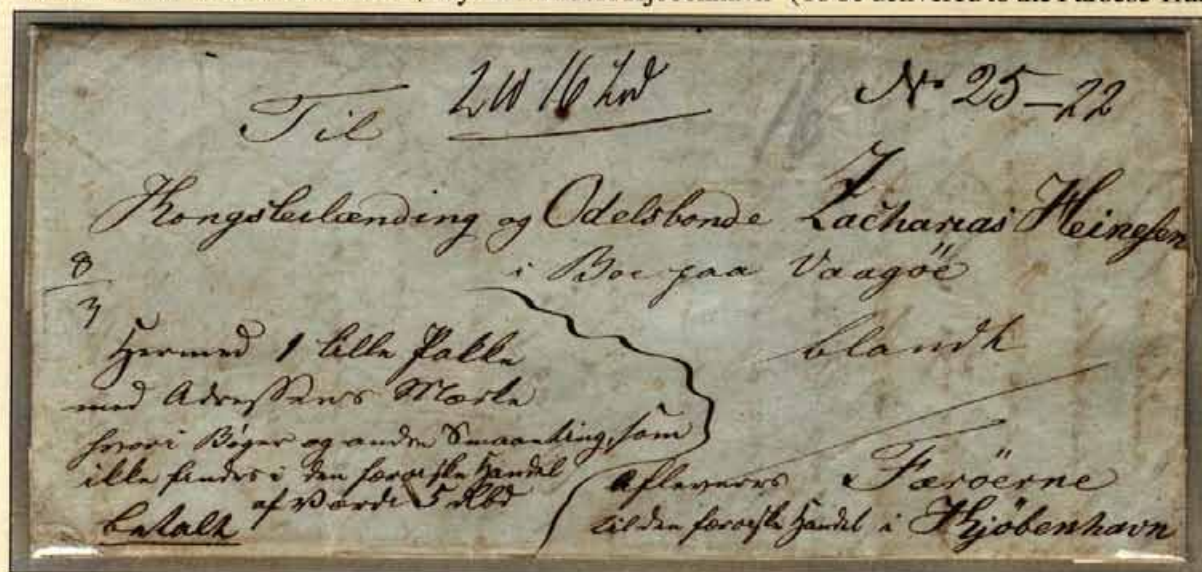 (to be delivered to the Faroese
2 ℔ 16 Lod
Til
16
No 25-22
Kongsleilænding og Odelsbonde Zacharias Heinesen
i Boe paa Vaagöe
blandt
8/3
Hermed 1 lille Pakke
med Adressens Mærke
hvori Bøger og andre Smaanting, som
ikke findes i den færøiske Handel
af Værdi 5 Rbd
betalt
Færöerne
Afleveres
til den færøiske Handel i Kjöbenhavn